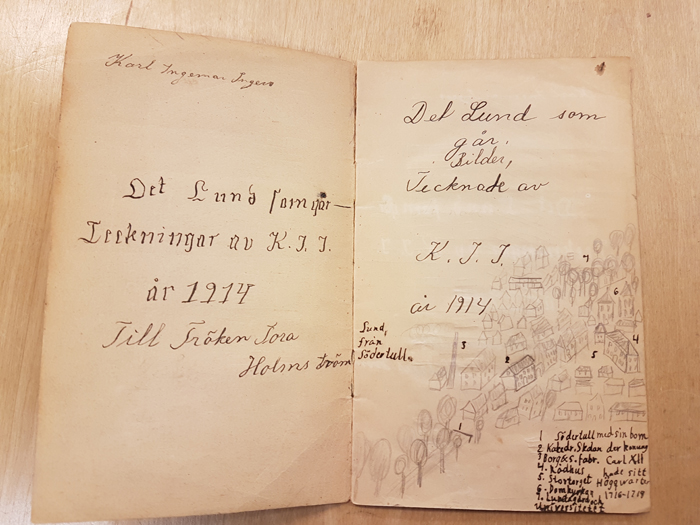 Karl Ingemar Ingers
Det Lund som går—
Teckningar av K. I. I.
år 1914
Till Fröken Tora
Holmström
Det Lund som
går.
Bilder,
Tecknade av
K. I. I.
år 1914
Lund,
från
Södertull.
7
6
4
3
5
2
1
1 Södertull med sin bom
2 Katedr.Skolan der konung
3 Borg&S. fabr. Carl XII
4. Rådhus hade sitt
5. Stortorget Högqwarter
6. Domkyrkan 1716-1718
7. Lundagård och
Universitetet